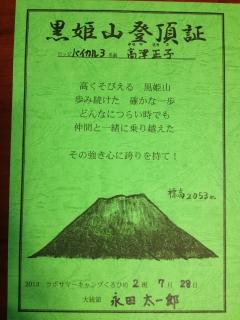 黒姫山登頂証
ロッジ バイカル3 名前 高津正子
高くそびえる 黒姫山
歩み続けた 確かな一歩
どんなにつらい時でも
仲間と一緒に乗り越えた
その強き心に誇りを持て!
標高2053m
2013 ラボサマーキャンプくろひめ 2班 7月28日
大統領 永田 太一郎